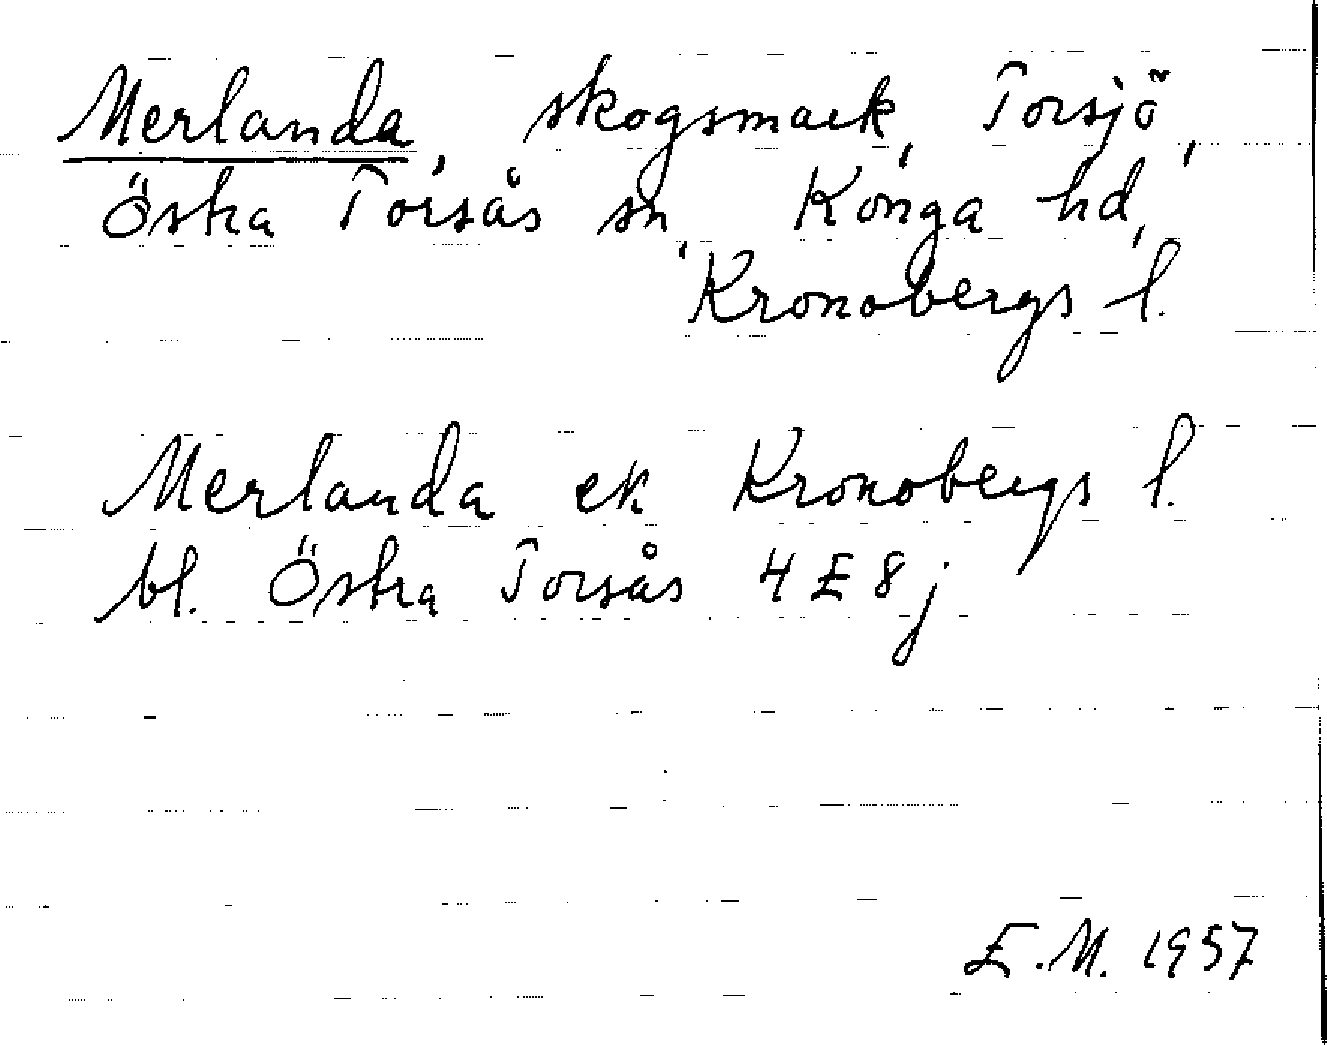 Merlanda, skogsmark, Torsjö,
Östra Torsås sn, Konga hd,
Kronobergs l.
Merlanda ek Kronobergs l.
bl. Östra Torsås 4 E 8 j
E.M. 1957